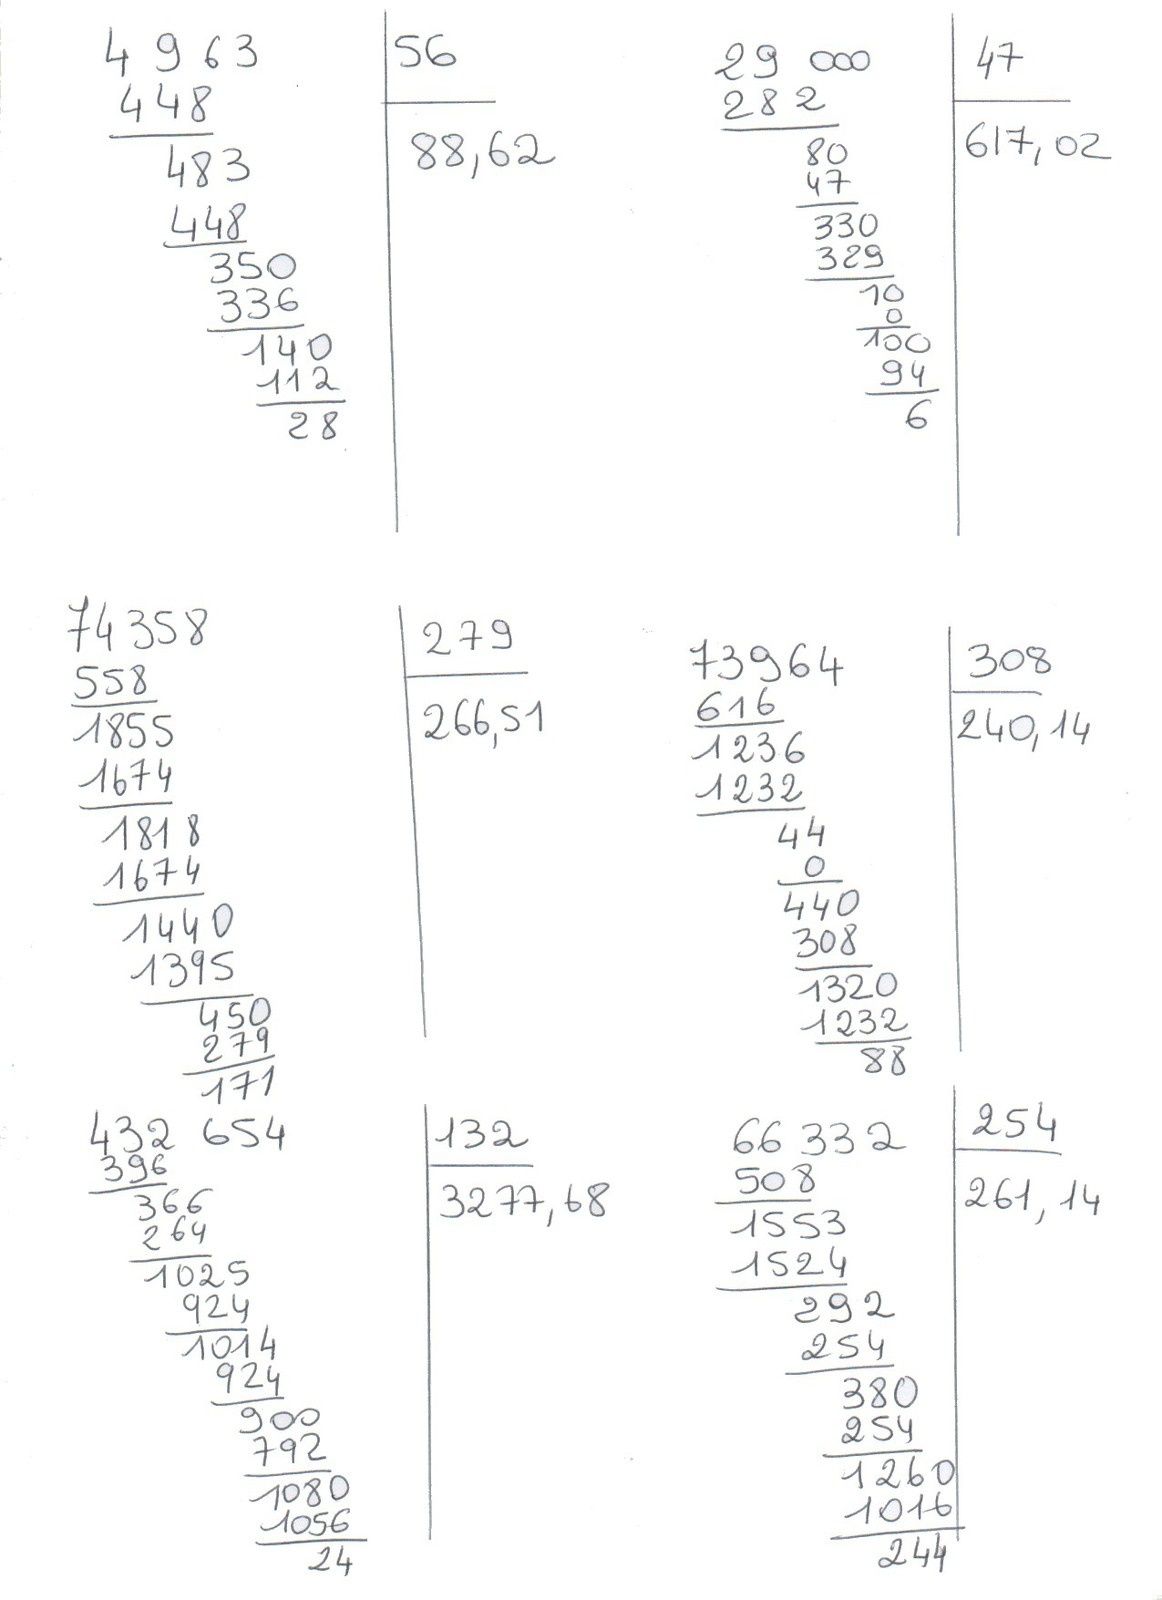 4 9 6 3
56
448
88,62
483
448
350
336
140
112
28
29 000
47
282
617,02
80
47
330
329
10
0
100
94
6
74358
279
558
266,51
1855
1674
1818
1674
1440
1395
450
279
171
73964
308
616
240,14
1236
1232
44
0
440
308
1320
1232
88
432 654
132
396
3277,68
366
264
1025
924
1014
924
900
792
1080
1056
24
66 332
254
508
261,14
1553
1524
292
254
380
254
1260
1016
244